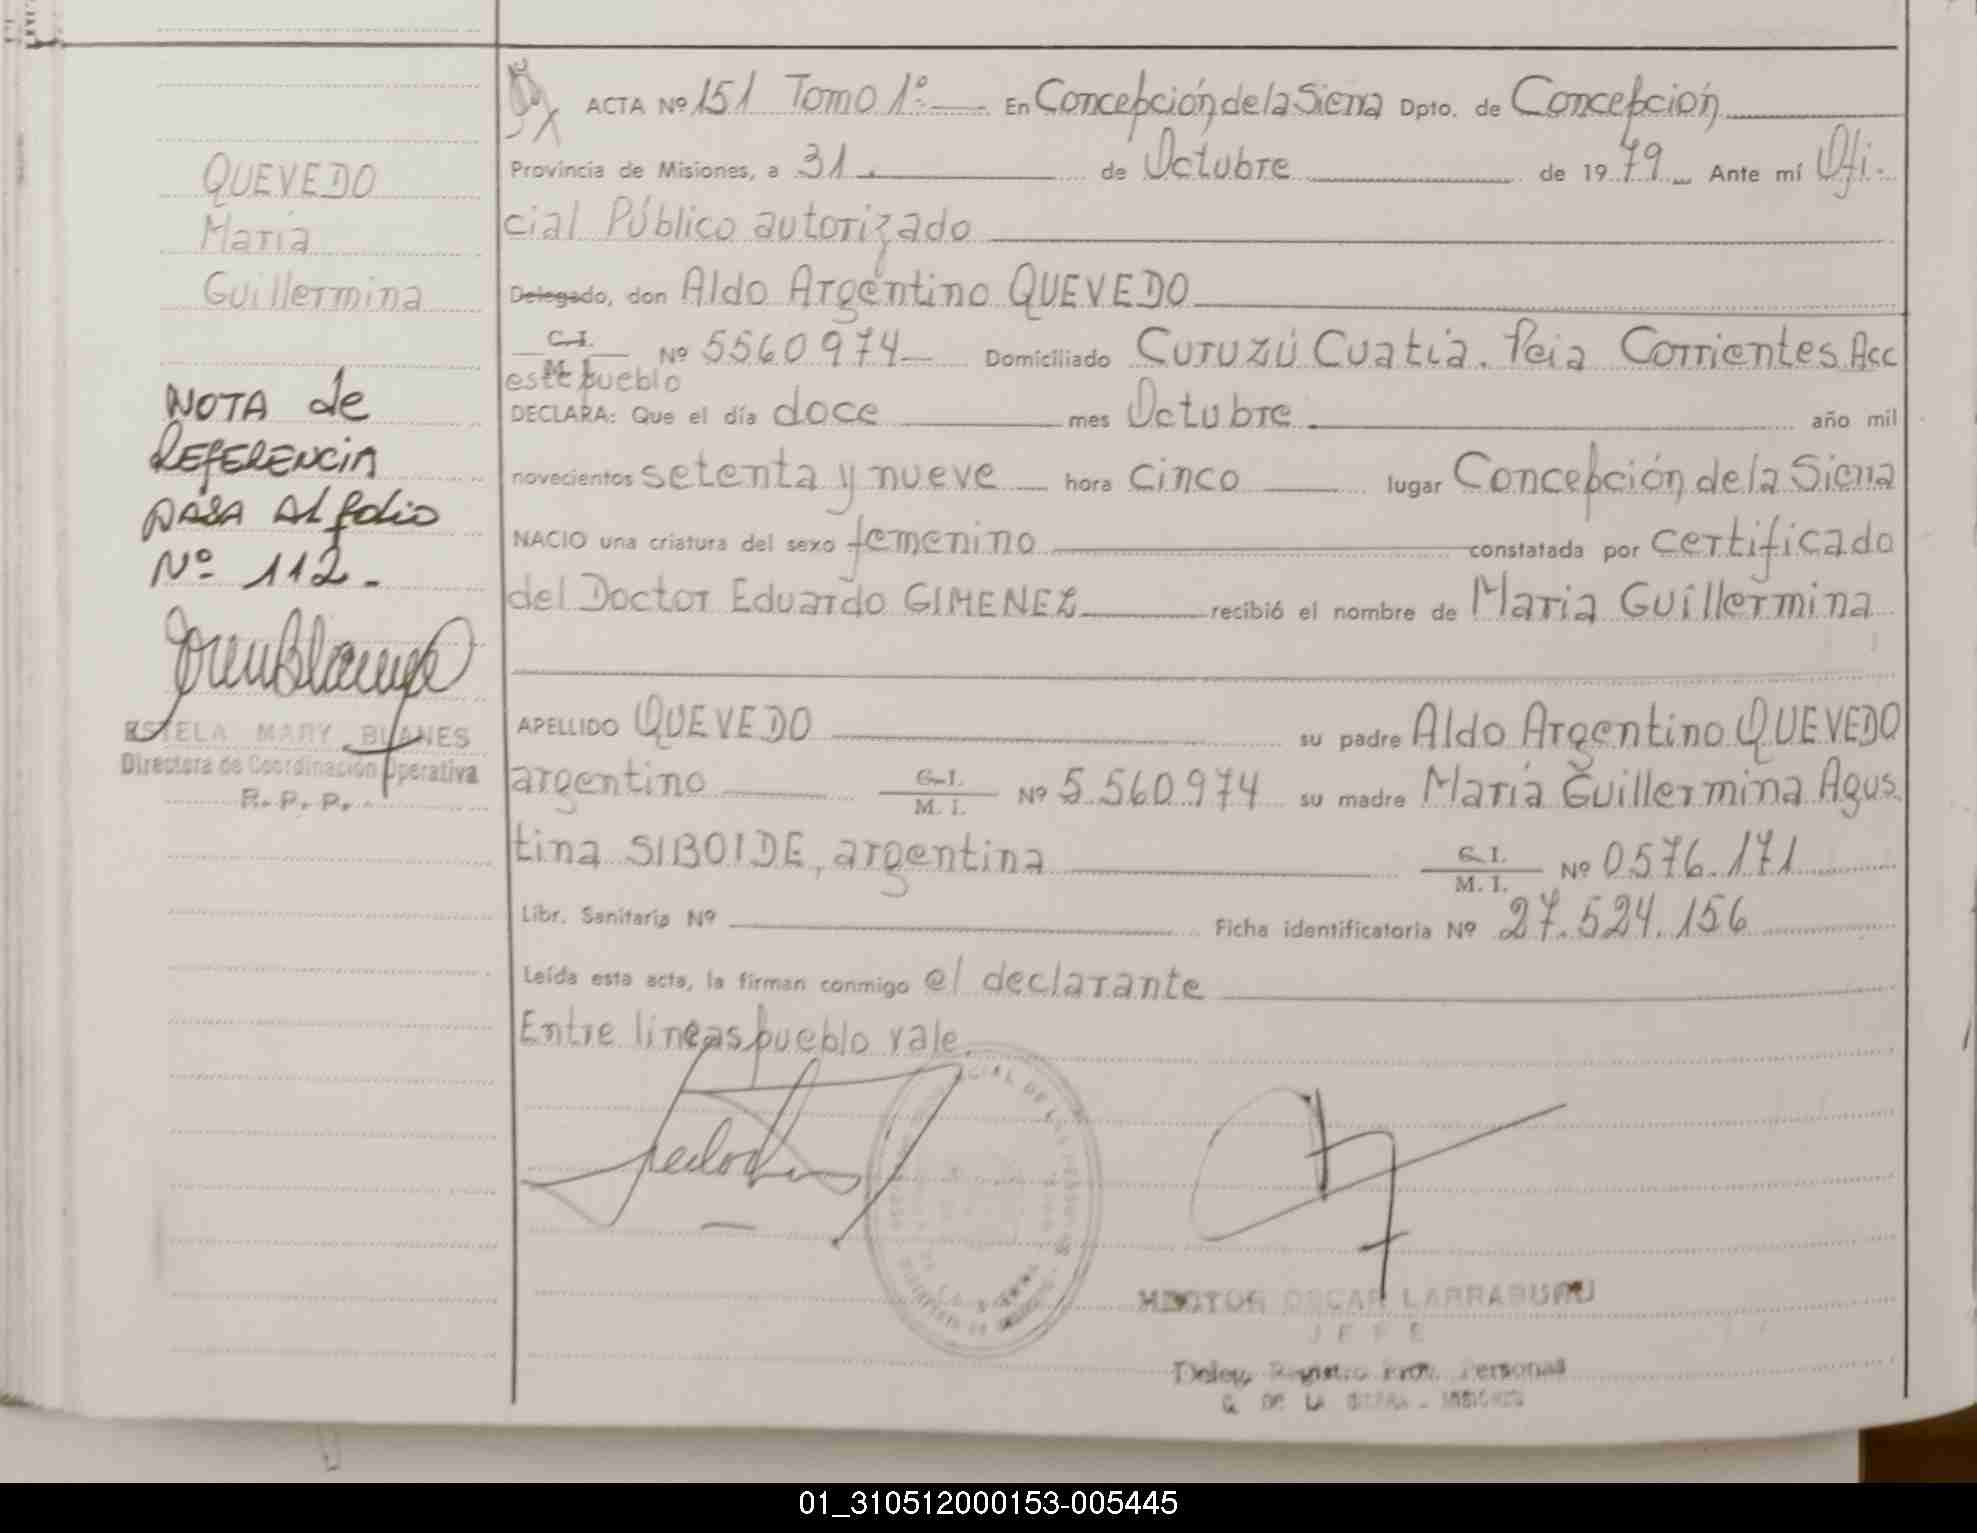 ACTA Nº 151 Tomo 1º En Concepción de la Sierra Dpto. de Concepción
Provincia de Misiones, a 31 de Octubre de 1979 Ante mí Ofi-
cial Público autorizado
Delegado, don Aldo Argentino QUEVEDO
C.I. M. I. Nº 5560974 Domiciliado Curuzú Cuatiá. Pcia Corrientes. Acc
este pueblo
DECLARA: Que el día doce mes Octubre año mil
novecientos setenta y nueve hora cinco lugar Concepción de la Sierra
NACIO una criatura del sexo femenino constatada por certificado
del Doctor Eduardo GIMENEZ recibió el nombre de Maria Guillermina
APELLIDO QUEVEDO su padre Aldo Argentino QUEVEDO
argentino C.I. M. I. Nº 5.560.974 su madre María Guillermina Agus
tina SIBOIDE, argentina C.I. M. I. Nº 0576.171
Libr. Sanitaria Nº Ficha identificatoria Nº 27.524.156
Leída esta acta, la firman conmigo el declarante
Entre líneas pueblo vale.
HECTOR OSCAR LARRABURU
JEFE
Deleg. Registro Prov. Personas
C. DE LA SIERRA - MISIONES
QUEVEDO
María
Guillermina
NOTA de
REFERENCIA
PASA Al folio
Nº 112.-
ESTELA MARY BLANES
Directora de Coordinación Operativa
R. P. P.
01_310512000153-005445